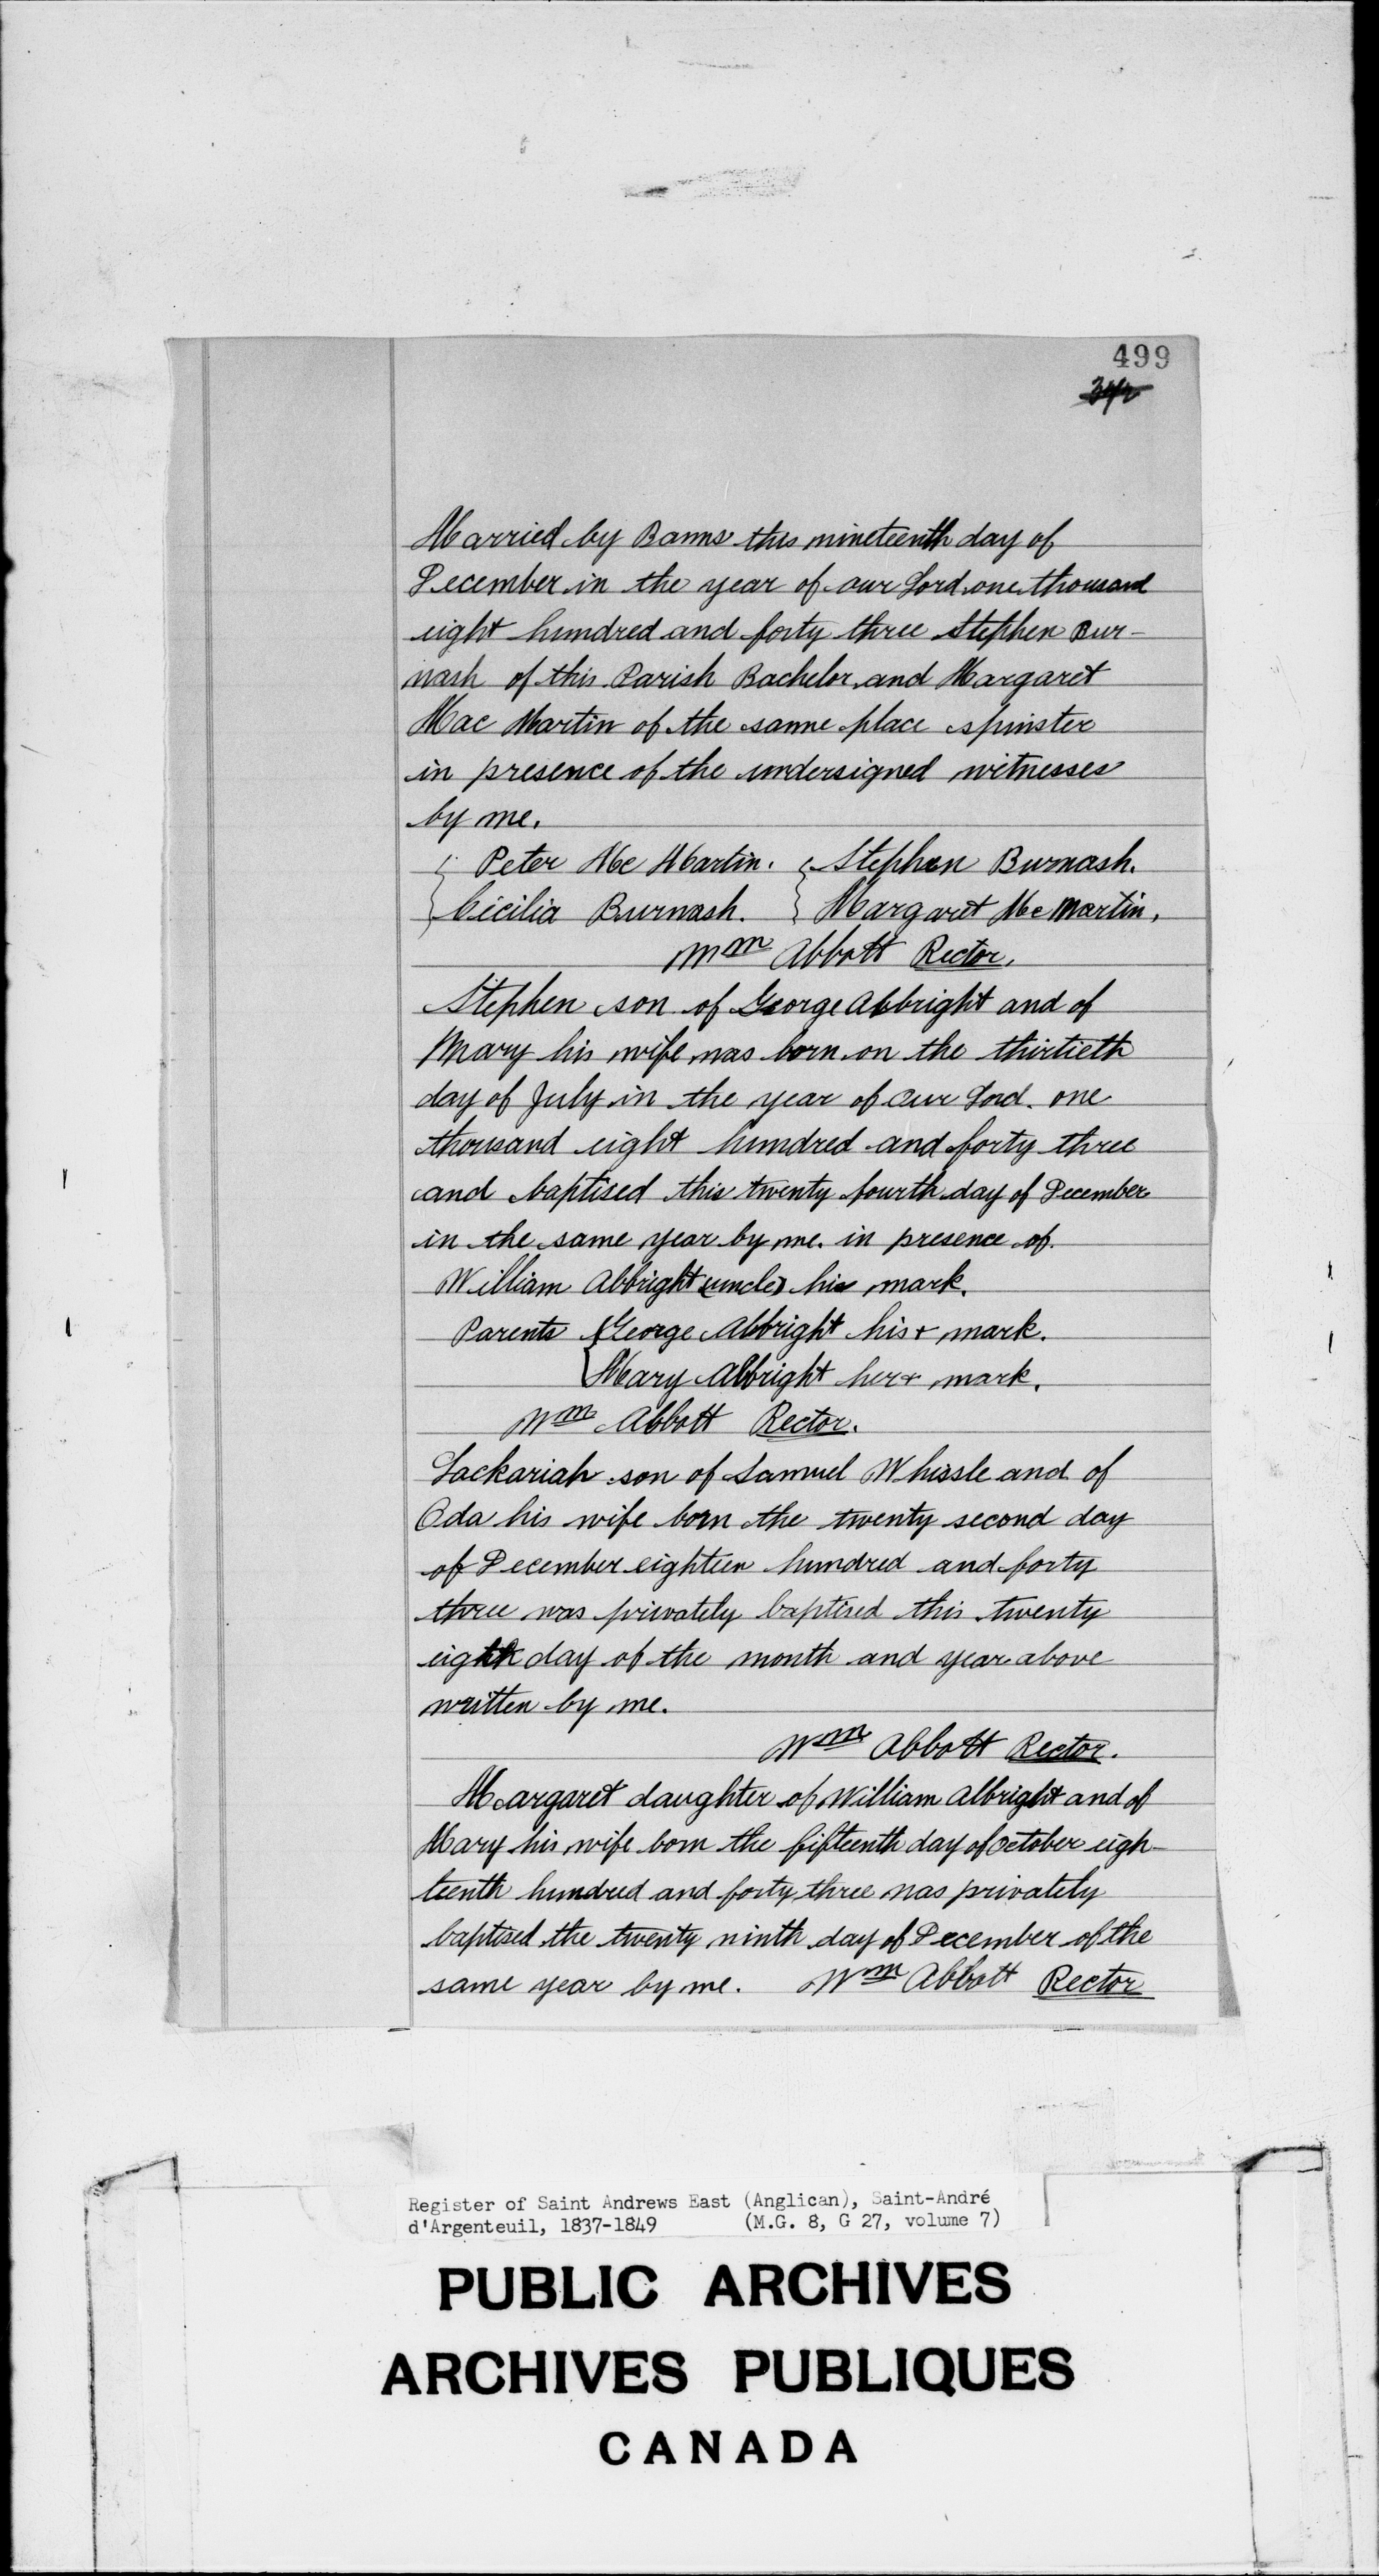 499
342
Married by Banns this nineteenth day of
December in the year of our Lord one thousand
eight hundred and forty three Stephen Bur-
nash of this Parish Bachelor and Margaret
Mac Martin of the same place spinster
in presence of the undersigned witnesses
by me.
{ Peter Mc Martin. { Stephen Burnash.
{ Cicilia Burnash. { Margaret Mc Martin.
Wm Abbott Rector.
Stephen son of George Abbright and of
Mary his wife was born on the thirtieth
day of July in the year of our Lord. one
thousand eight hundred and forty three
and baptised this twenty fourth day of December
in the same year by me. in presence of.
William Abbright (uncle) his mark.
Parents { George Abbright his + mark.
{ Mary Abbright her + mark.
Wm Abbott Rector.
Zackariah son of Samuel Whissle and of
Oda his wife born the twenty second day
of December eighteen hundred and forty
three was privately baptised this twenty
eighth day of the month and year above
written by me.
Wm Abbott Rector.
Margaret daughter of William Albright and of
Mary his wife born the fifteenth day of October eigh-
teenth hundred and forty three was privately
baptised the twenty ninth day of December of the
same year by me. Wm Abbott Rector
Register of Saint Andrews East (Anglican), Saint-André
d'Argenteuil, 1837-1849 (M.G. 8, G 27, volume 7)
PUBLIC ARCHIVES
ARCHIVES PUBLIQUES
CANADA